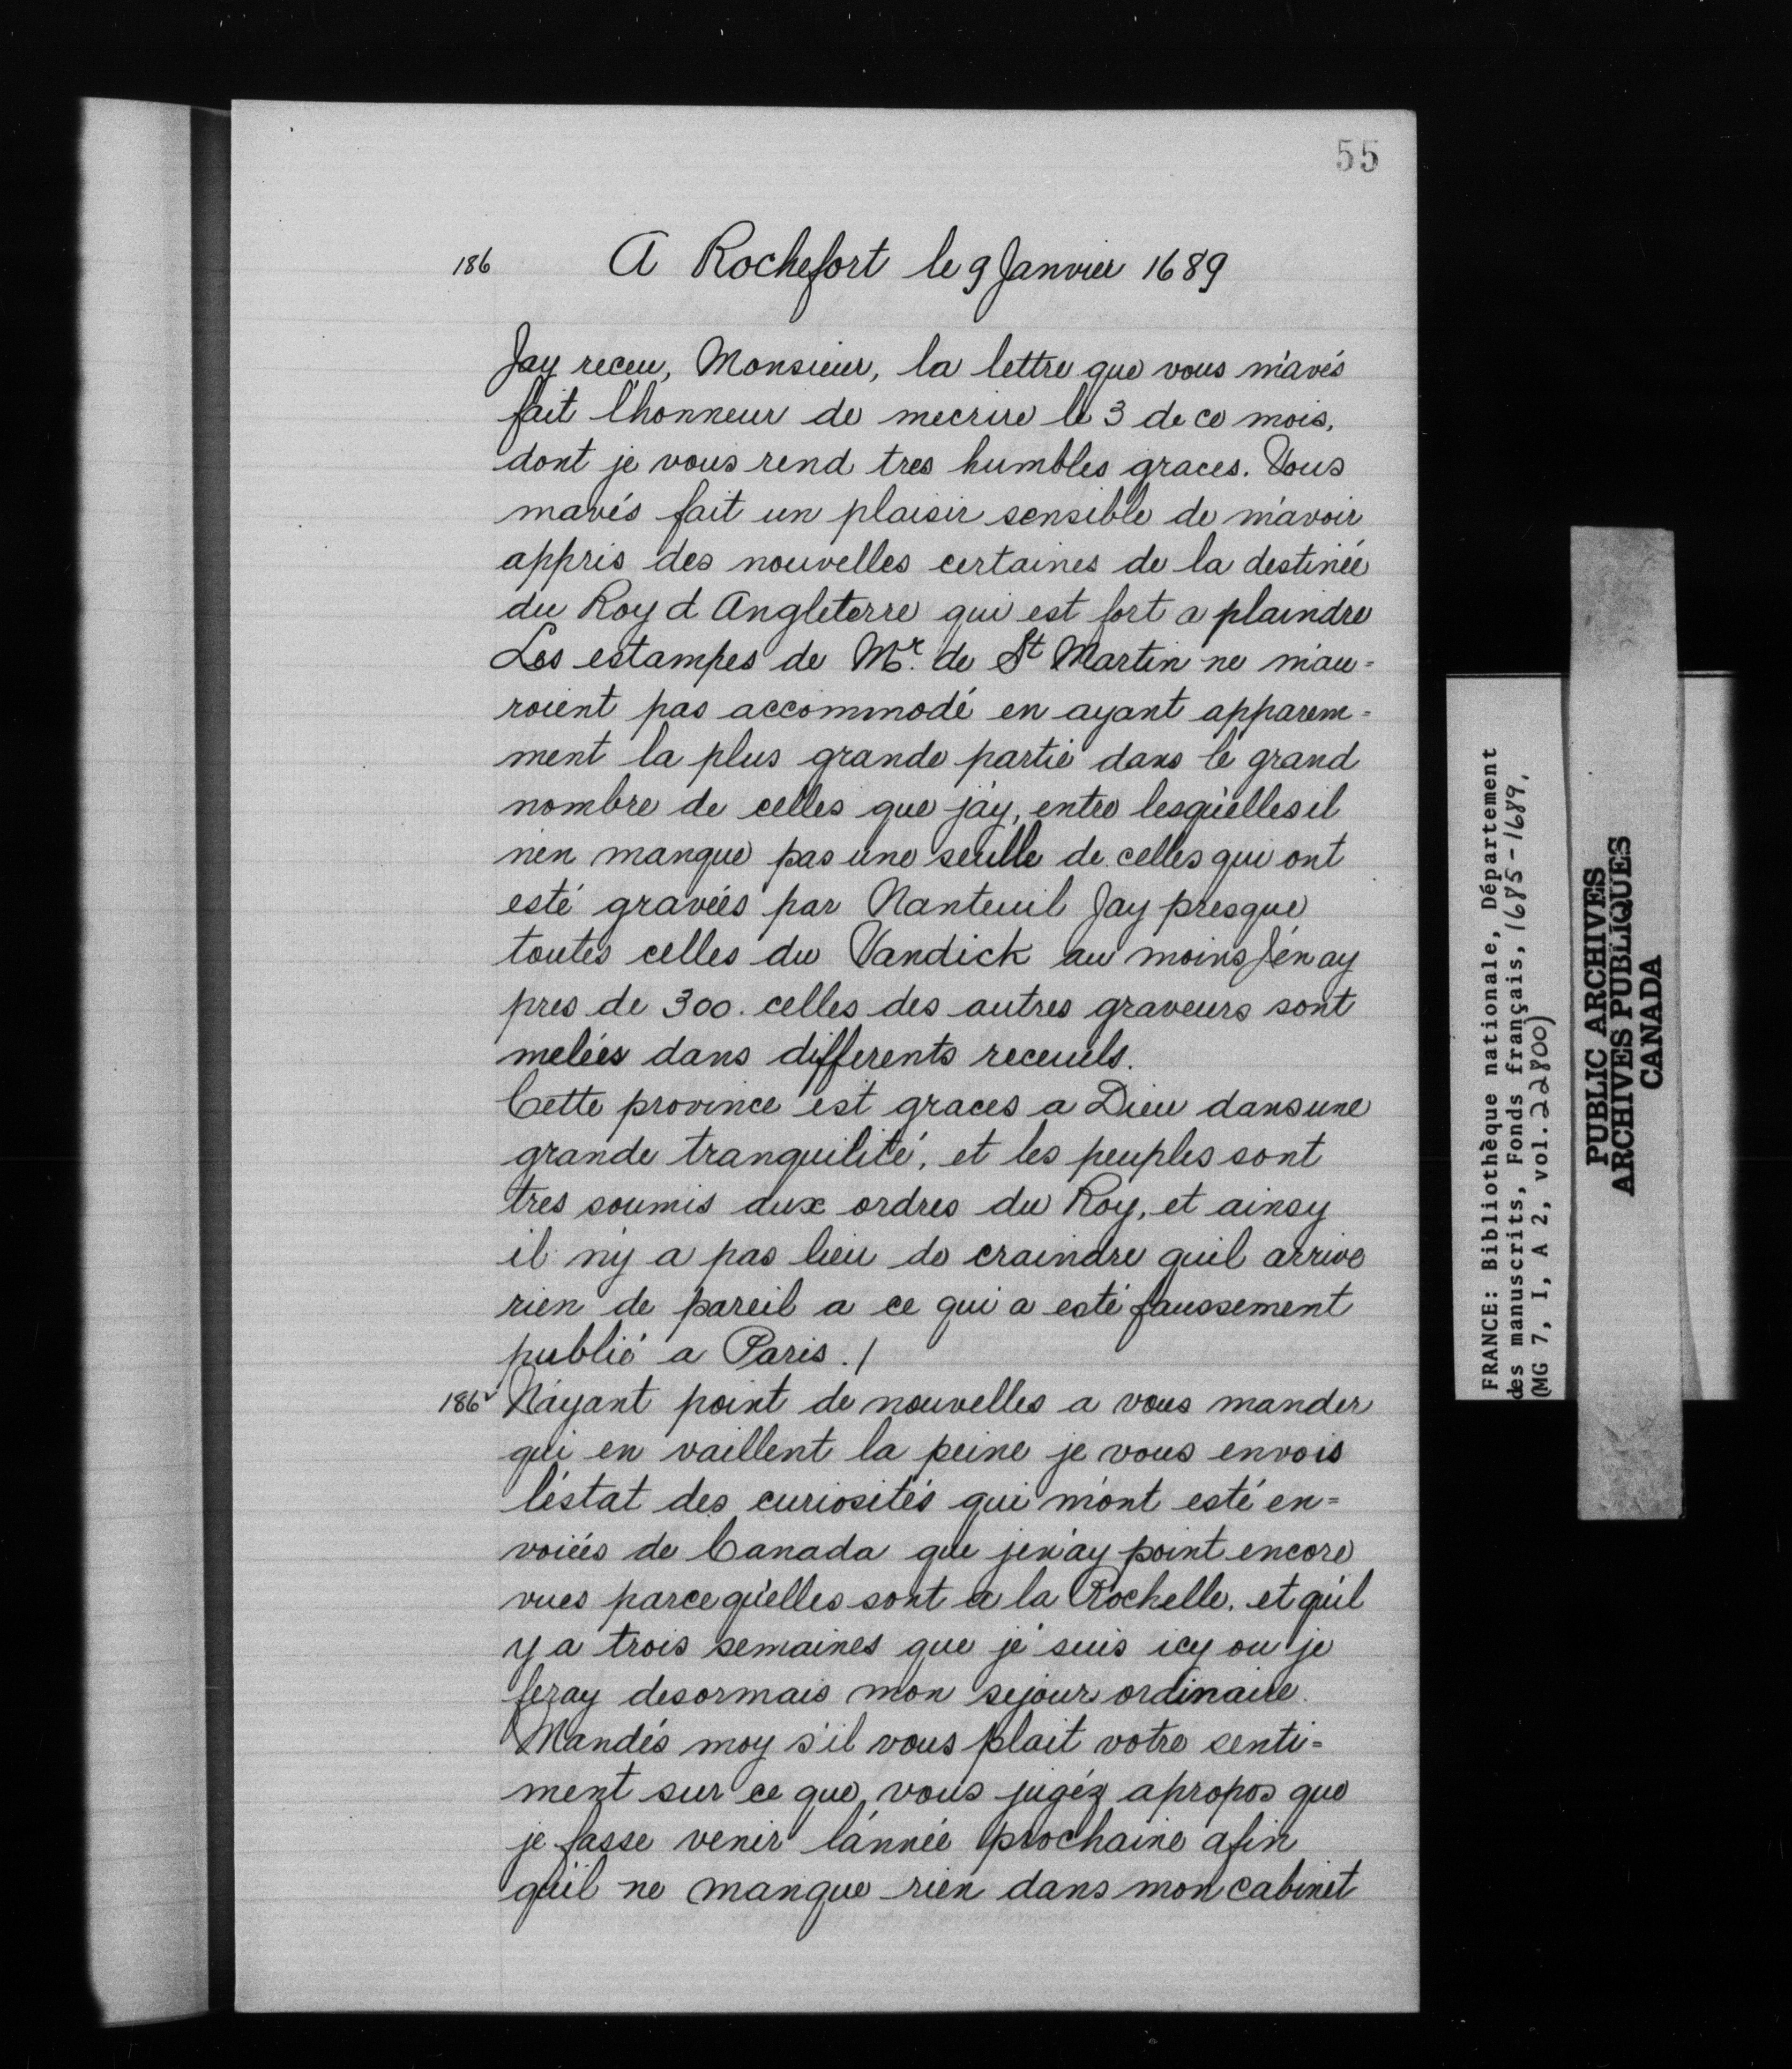 55
186 A Rochefort le 9 Janvier 1689
Jay receu, Monsieur, la lettre que vous m'avés
fait l'honneur de mecrire le 3 de ce mois,
dont je vous rend tres humbles graces. Vous
mavés fait un plaisir sensible de m'avoir
appris des nouvelles certaines de la destinée
du Roy d Angleterre qui est fort a plaindre
Les estampes de Mr. de St Martin ne m'au=
roient pas accommodé en ayant apparem=
ment la plus grande partie dans le grand
nombre de celles que j'ay, entre lesquelles il
n'en manque pas une seulle de celles qui ont
esté gravées par Nanteuil Jay presque
toutes celles du Vandick au moins J'en ay
pres de 300. celles des autres graveurs sont
melées dans differents receuils.
Cette province est graces a Dieu dans une
grande tranquilité, et les peuples sont
tres soumis aux ordres du Roy, et ainsy
il n'y a pas lieu de craindre quil arrive
rien de pareil a ce qui a esté faussement
publié a Paris. /
186v N'ayant point de nouvelles a vous mander
qui en vaillent la peine je vous envois
l'estat des curiosités qui m'ont esté en=
voiées de Canada que je n'ay point encore
vues parce qu'elles sont a la Rochelle, et qu'il
y a trois semaines que je suis icy ou je
feray desormais mon sejour ordinaire.
Mandés moy s'il vous plait votre senti=
ment sur ce que vous jugéz apropos que
je fasse venir l'année prochaine afin
qu'il ne manque rien dans mon cabinet
FRANCE: Bibliothèque nationale, Département
des manuscrits, Fonds français, 1685-1689.
(MG 7, I, A 2, vol. 22800)
PUBLIC ARCHIVES
ARCHIVES PUBLIQUES
CANADA